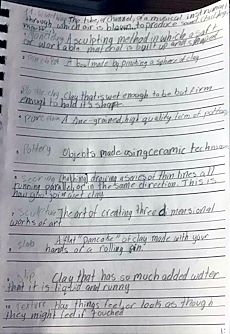 The tube, or channel, of a musical instrument
through which air is blown to produce sound
A sculpting method in which a soft
or workable material is built up and shaped
A bowl made by pinching a sphere of clay
clay Clay that is wet enough to be but firm
enough to hold it's shape
A fine-grained, high quality form of pottery
Pottery Objects made using ceramic techniques
drawing a series of thin lines all
running parallel, or in the same direction. This is
how you join wet clay
The art of creating three dimensional
works of art
slab A flat "pancake" of clay made with your
hands or a rolling pin.
slip Clay that has so much added water
that it is liquid and runny
texture How things feel, or look as though
they might feel if touched